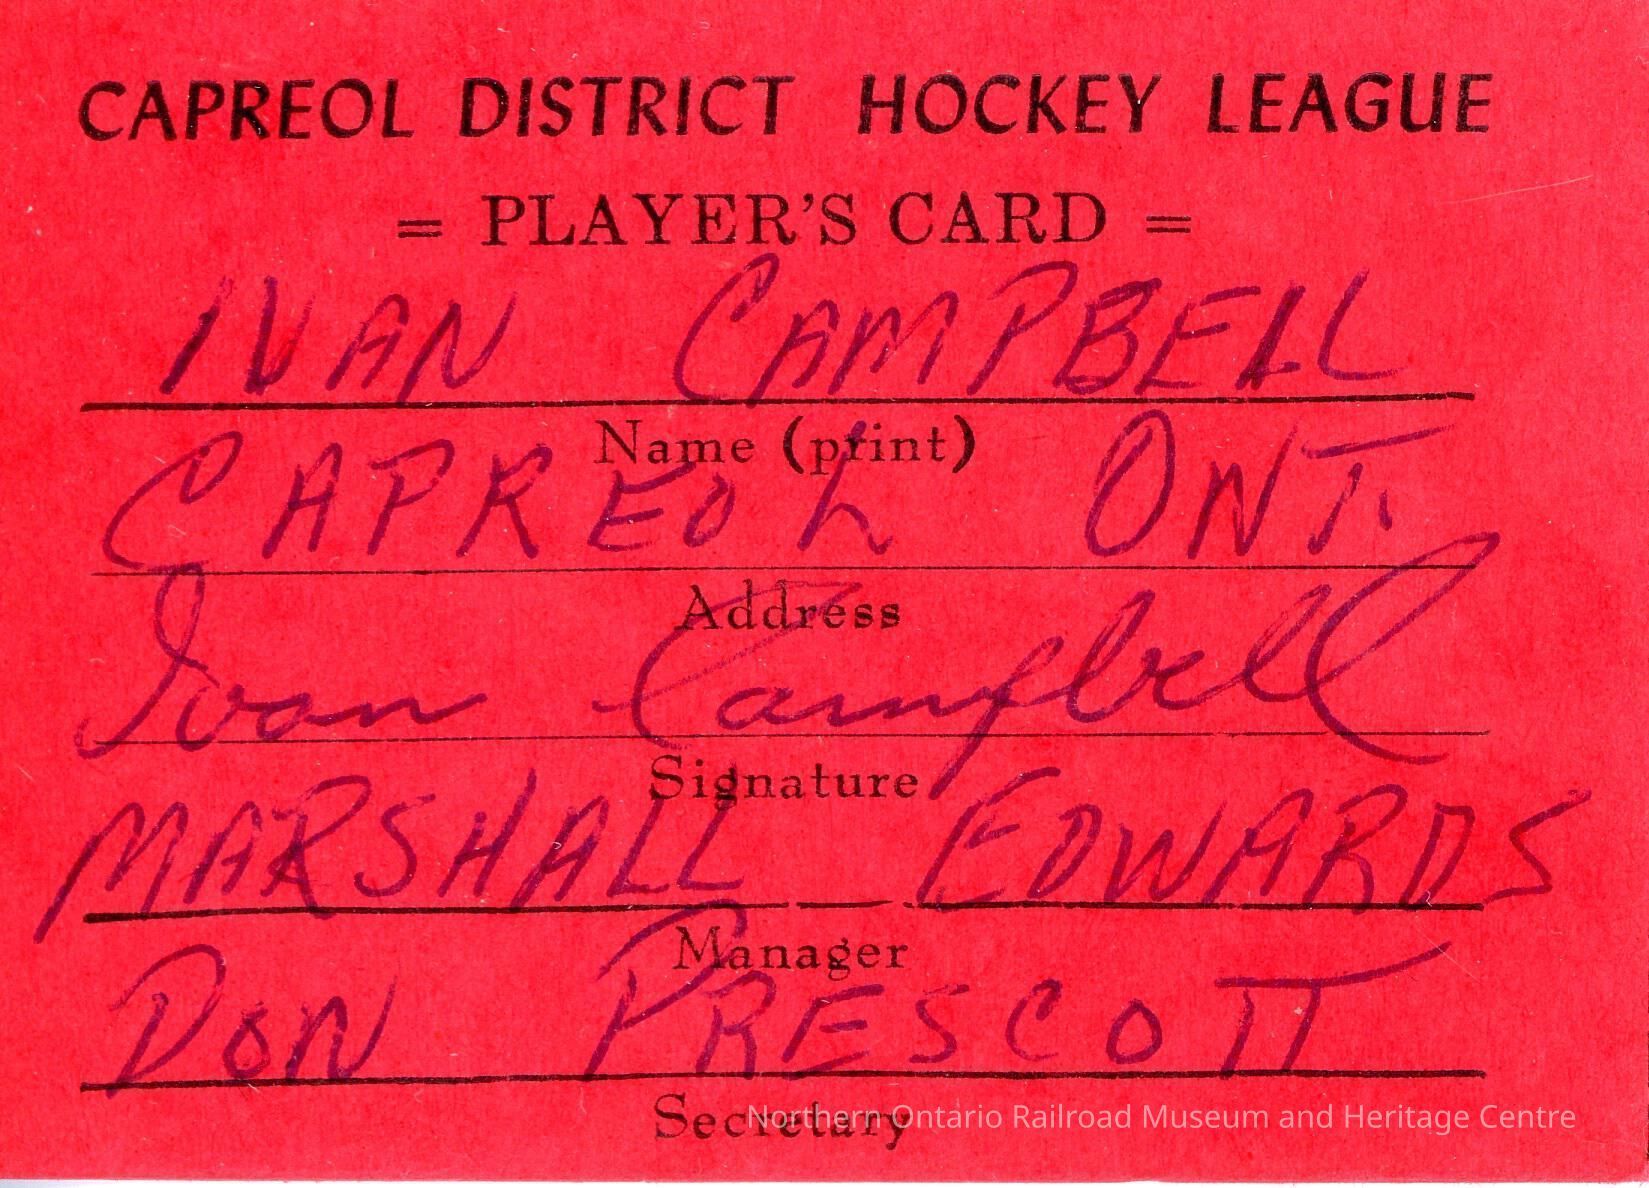 CAPREOL DISTRICT HOCKEY LEAGUE
= PLAYER'S CARD =
IVAN CAMPBELL
Name (print)
CAPREOL ONT.
Address
Ivan Campbell
Signature
MARSHALL EDWARDS
Manager
DON PRESCOTT
Secretary
Northern Ontario Railroad Museum and Heritage Centre